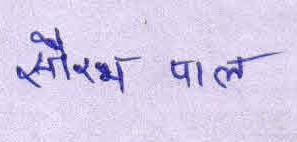 सौरभ पाल